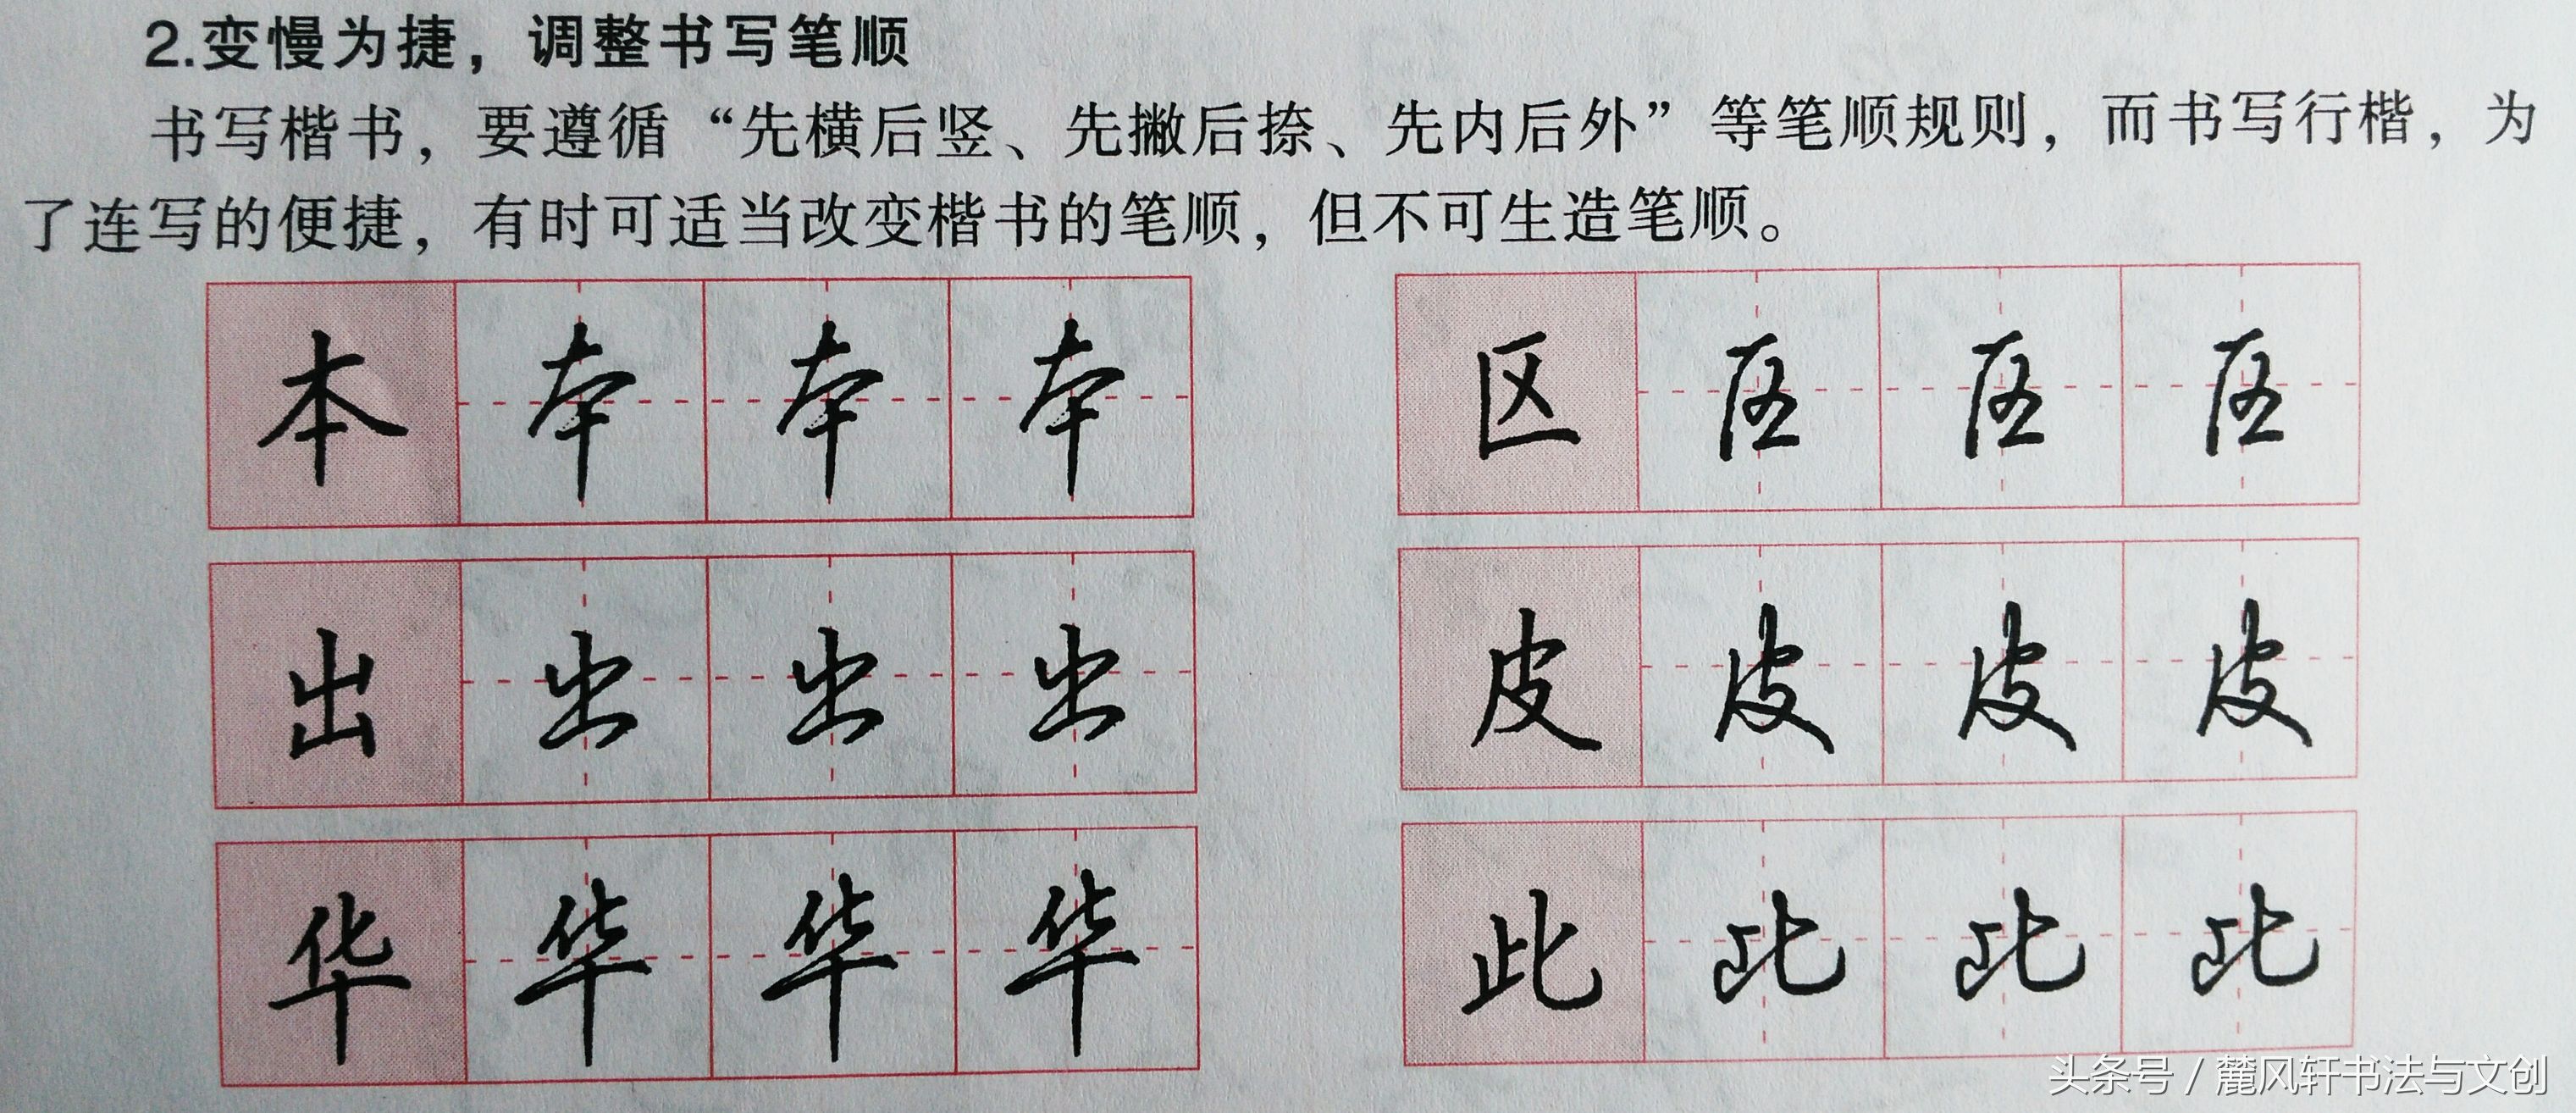 2.变慢为捷，调整书写笔顺
书写楷书，要遵循“先横后竖、先撇后捺、先内后外”等笔顺规则，而书写行楷，为
了连写的便捷，有时可适当改变楷书的笔顺，但不可生造笔顺。
本 本 本 本 区 区 区 区
出 出 出 出 皮 皮 皮 皮
华 华 华 华 此 此 此 此
头条号 / 麓风轩书法与文创